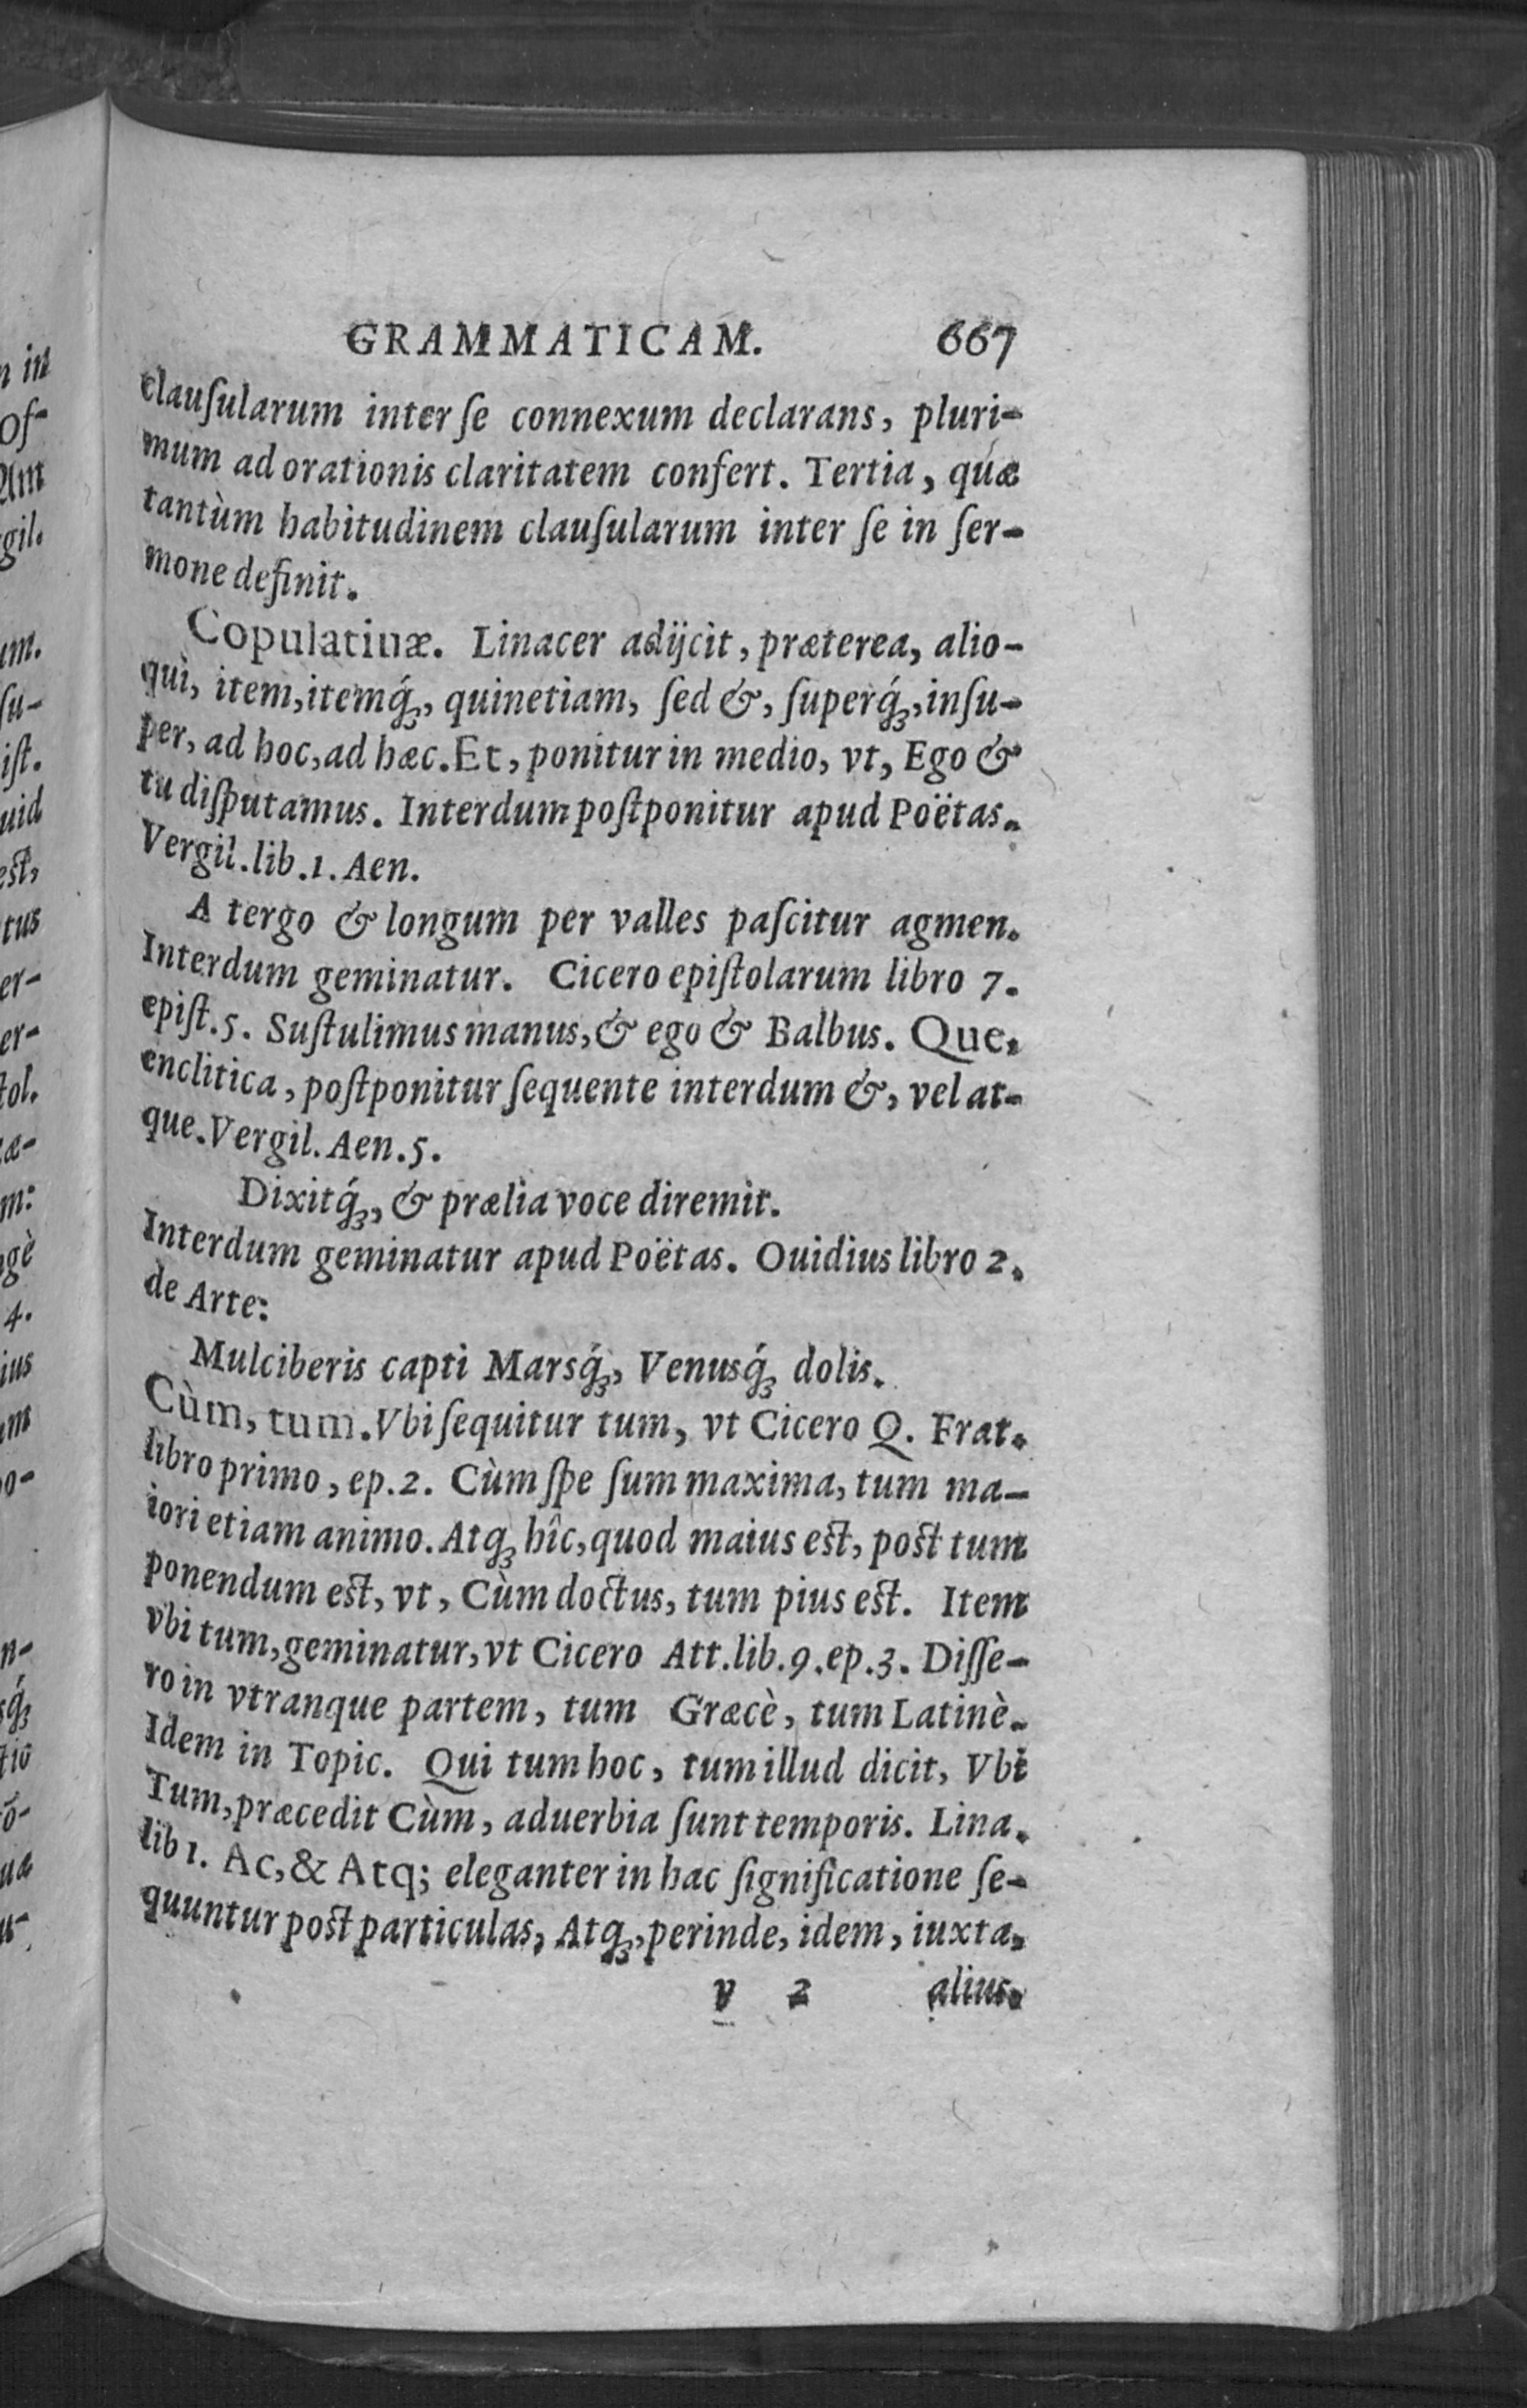 GRAMMATICAM. 667
clauſularum inter ſe connexum declarans, pluri-
mum ad orationis claritatem confert. Tertia, quæ
tantùm habitudinem clauſularum inter ſe in ſer-
mone definit.
Copulatiuæ. Linacer adijcit, præterea, alio-
qui, item, itemq́ꝫ, quinetiam, ſed &, ſuperq́ꝫ, inſu-
per, ad hoc, ad hæc. Et, ponitur in medio, vt, Ego &
tu diſputamus. Interdum poſtponitur apud Poëtas.
Vergil. lib. 1. Aen.
A tergo & longum per valles paſcitur agmen.
Interdum geminatur. Cicero epiſtolarum libro 7.
epiſt. 5. Suſtulimus manus, & ego & Balbus. Que,
enclitica, poſtponitur ſequente interdum &, vel at-
que. Vergil. Aen. 5.
Dixitq́ꝫ, & prælia voce diremit.
Interdum geminatur apud Poëtas. Ouidius libro 2.
de Arte:
Mulciberis capti Marsq́ꝫ, Venusq́ꝫ dolis.
Cùm, tum. Vbi ſequitur tum, vt Cicero Q. Frat.
libro primo, ep. 2. Cùm ſpe ſum maxima, tum ma-
iori etiam animo. Atqꝫ hîc, quod maius eſt, poſt tum
ponendum eſt, vt, Cùm doctus, tum pius eſt. Item
vbi tum, geminatur, vt Cicero Att. lib. 9. ep. 3. Diſſe-
ro in vtranque partem, tum Græcè, tum Latinè.
Idem in Topic. Qui tum hoc, tum illud dicit, Vbi
Tum, præcedit Cùm, aduerbia ſunt temporis. Lina.
lib 1. Ac, & Atq; eleganter in hac ſignificatione ſe-
quuntur poſt particulas, Atqꝫ, perinde, idem, iuxta,
v 2 alius.